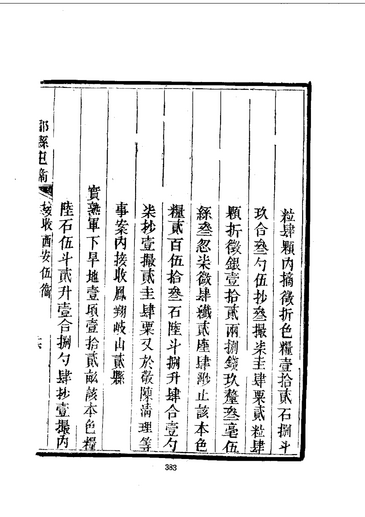 粒肆顆內摘徵折色糧壹拾貳石捌斗
玖合叁勺伍抄叁撮柒圭肆粟貳粒肆
顆折徵銀壹拾貳兩捌錢玖釐叁毫伍
絲叁忽柒微肆纖貳座肆渺止該本色
糧貳百伍拾叁石陸斗捌升肆合壹勺
柒抄壹撮貳圭肆粟又於敬陳清理等
事案內接收鳳翔岐山貳縣
實熟軍下旱地壹項壹拾貳畝該本色糧
陸石伍斗貳升壹合捌勺肆抄壹撮內
接收西安伍衞
383